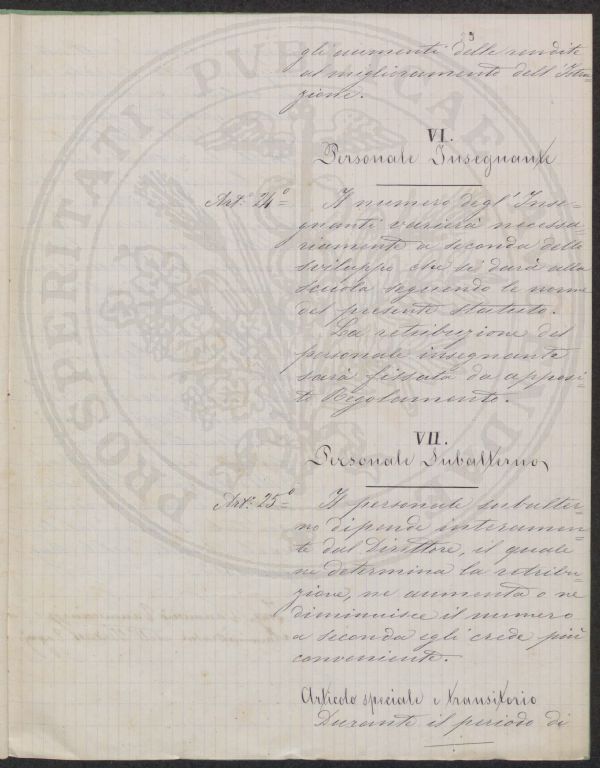 3
gli aumenti delle rendite
al miglioramento dell'Istru-
zione.
VI.
Personale Insegnante
Art.° 24° = Il numero degl'Inse-
gnanti varierà necessa-
riamente a seconda dello
sviluppo che si darà alla
scuola seguendo le norme
del presente statuto.
La retribuzione del
personale insegnante
sarà fissata da apposi-
to Regolamento.
VII.
Personale Subalterno
Art.° 25° = Il personale subalter-
no dipende interamen-
te dal Direttore, il quale
ne determina la retribu-
zione, ne aumenta o ne
diminuisce il numero
a seconda egli crede più
conveniente.
Articolo speciale e transitorio
Durante il periodo di
PROSPERITATI PUBLICAE